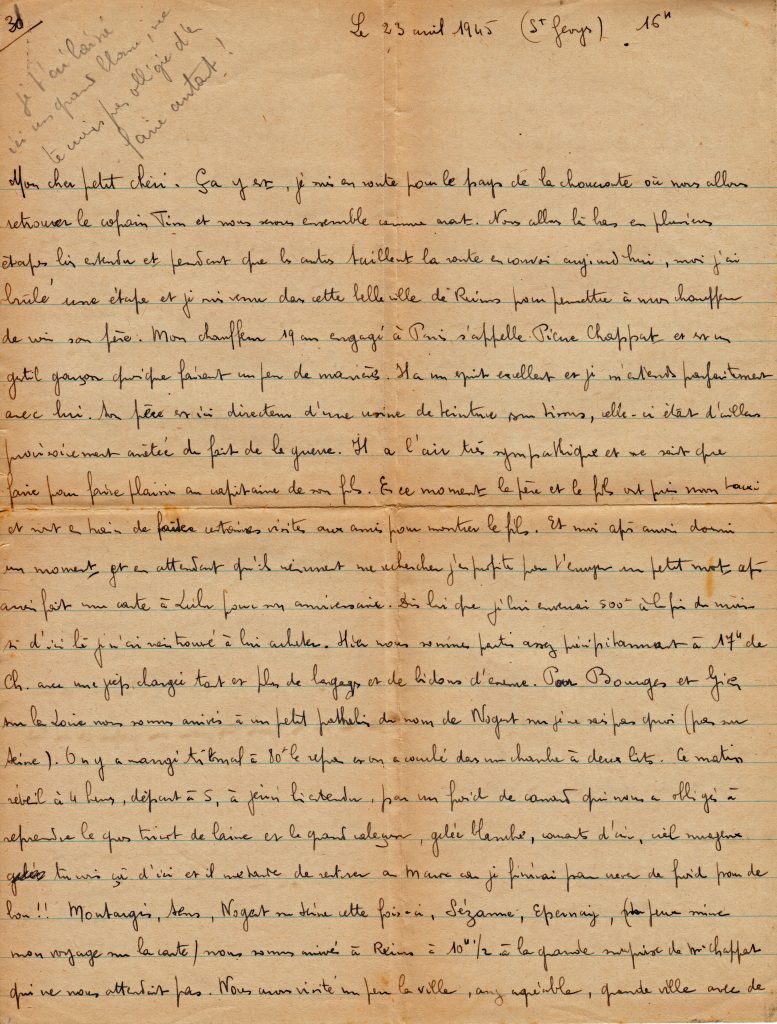 30
Le 23 avril 1945 (St Georges) 16H
je t'ai laissé
ici un grand blanc, ne
te crois pas obligé d'en
faire autant !
Mon cher petit chéri. Ça y est, je suis en route pour le pays de la choucroute où nous allons
retrouver le copain Tim et nous serons ensemble comme avant. Nous allons là bas en plusieurs
étapes bien entendu et pendant que les autres taillent la route en convoi aujourd'hui, moi j'ai
brûlé une étape et je suis venu dans cette belle ville de Reims pour permettre à mon chauffeur
de voir son père. Mon chauffeur 19 ans engagé à Paris s'appelle Pierre Chappat et est un
gentil garçon quoique faisant un peu de manières. Il a un esprit excellent et je m'entends parfaitement
avec lui. Son père est ici directeur d'une usine de teinture sur tissus, celle-ci étant d'ailleurs
provisoirement arrêtée du fait de la guerre. Il a l'air très sympathique et ne sait que
faire pour faire plaisir au capitaine de son fils. En ce moment le père et le fils ont pris mon taxi
et sont en train de faire certaines visites aux amis pour montrer le fils. Et moi après avoir dormi
un moment et en attendant qu'ils reviennent me rechercher j'en profite pour t'envoyer un petit mot après
avoir fait une carte à Lulu pour son anniversaire. Dis lui que je lui enverrai 500f à la fin du mois
si d'ici là je n'ai rien trouvé à lui acheter. Hier nous sommes partis assez précipitamment à 17H de
Ch. avec une jeep chargée tant et plus de bagages et de bidons d'essence. Par Bourges et Gien
sur la Loire nous sommes arrivés à un petit patelin du nom de Nogent sur je ne sais pas quoi (pas sur
Seine). On y a mangé très mal à 80f le repas et on a couché dans une chambre à deux lits. Ce matin
réveil à 4 heures, départ à 5, à jeun bien entendu, par un froid de canard qui nous a obligés à
reprendre le gros tricot de laine et le grand caleçon, gelée blanche, courants d'air, ciel nuageux
tu vois ça d'ici et il me tarde de rentrer au Maroc car je finirai par crever de froid pour de
bon !! Montargis, Sens, Nogent sur Seine cette fois-ci, Sézanne, Epernay, (tu peux suivre
mon voyage sur la carte) nous sommes arrivés à Reims à 10H 1/2 à la grande surprise de Mr Chappat
qui ne nous attendait pas. Nous avons visité un peu la ville, assez agréable, grande ville avec de